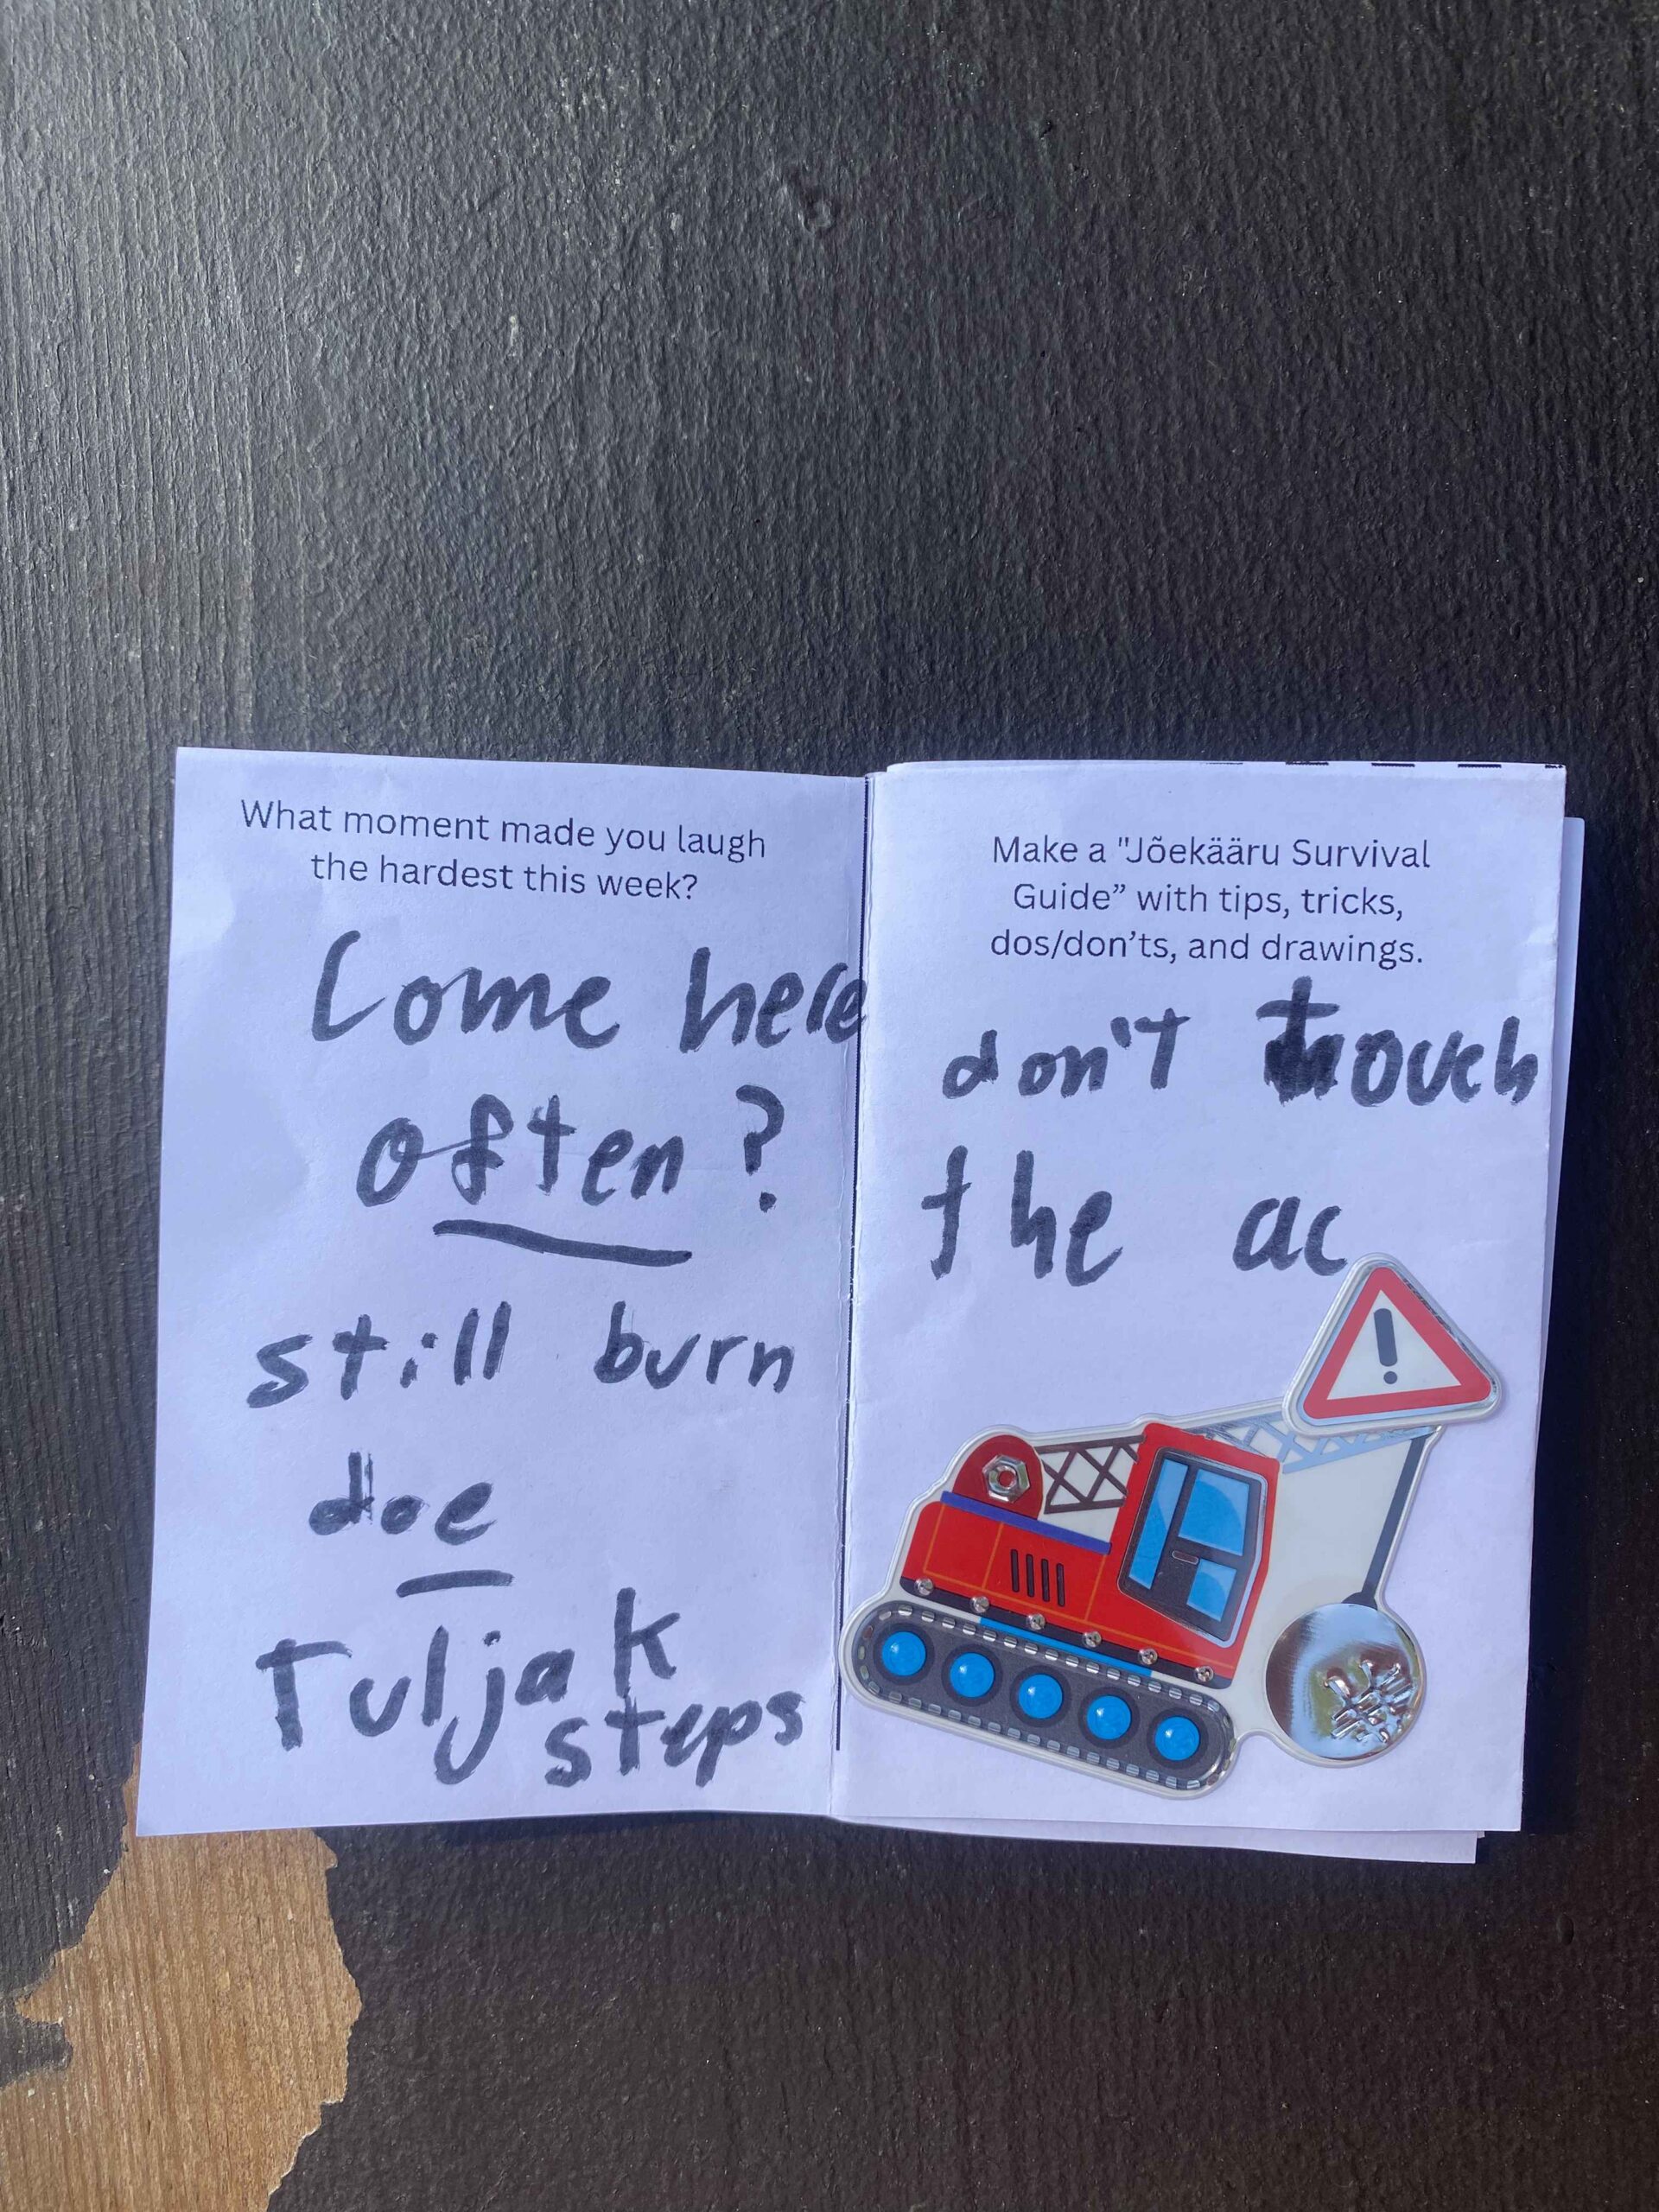 What moment made you laugh
the hardest this week?
Come here
often?
still burn
doe
Tuljak
steps
Make a "Jõekääru Survival
Guide” with tips, tricks,
dos/don’ts, and drawings.
don't touch
the ac
!